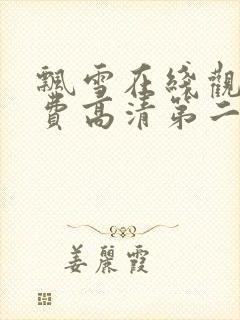 飄雪在綫觀
費高清第二
姜麗霞